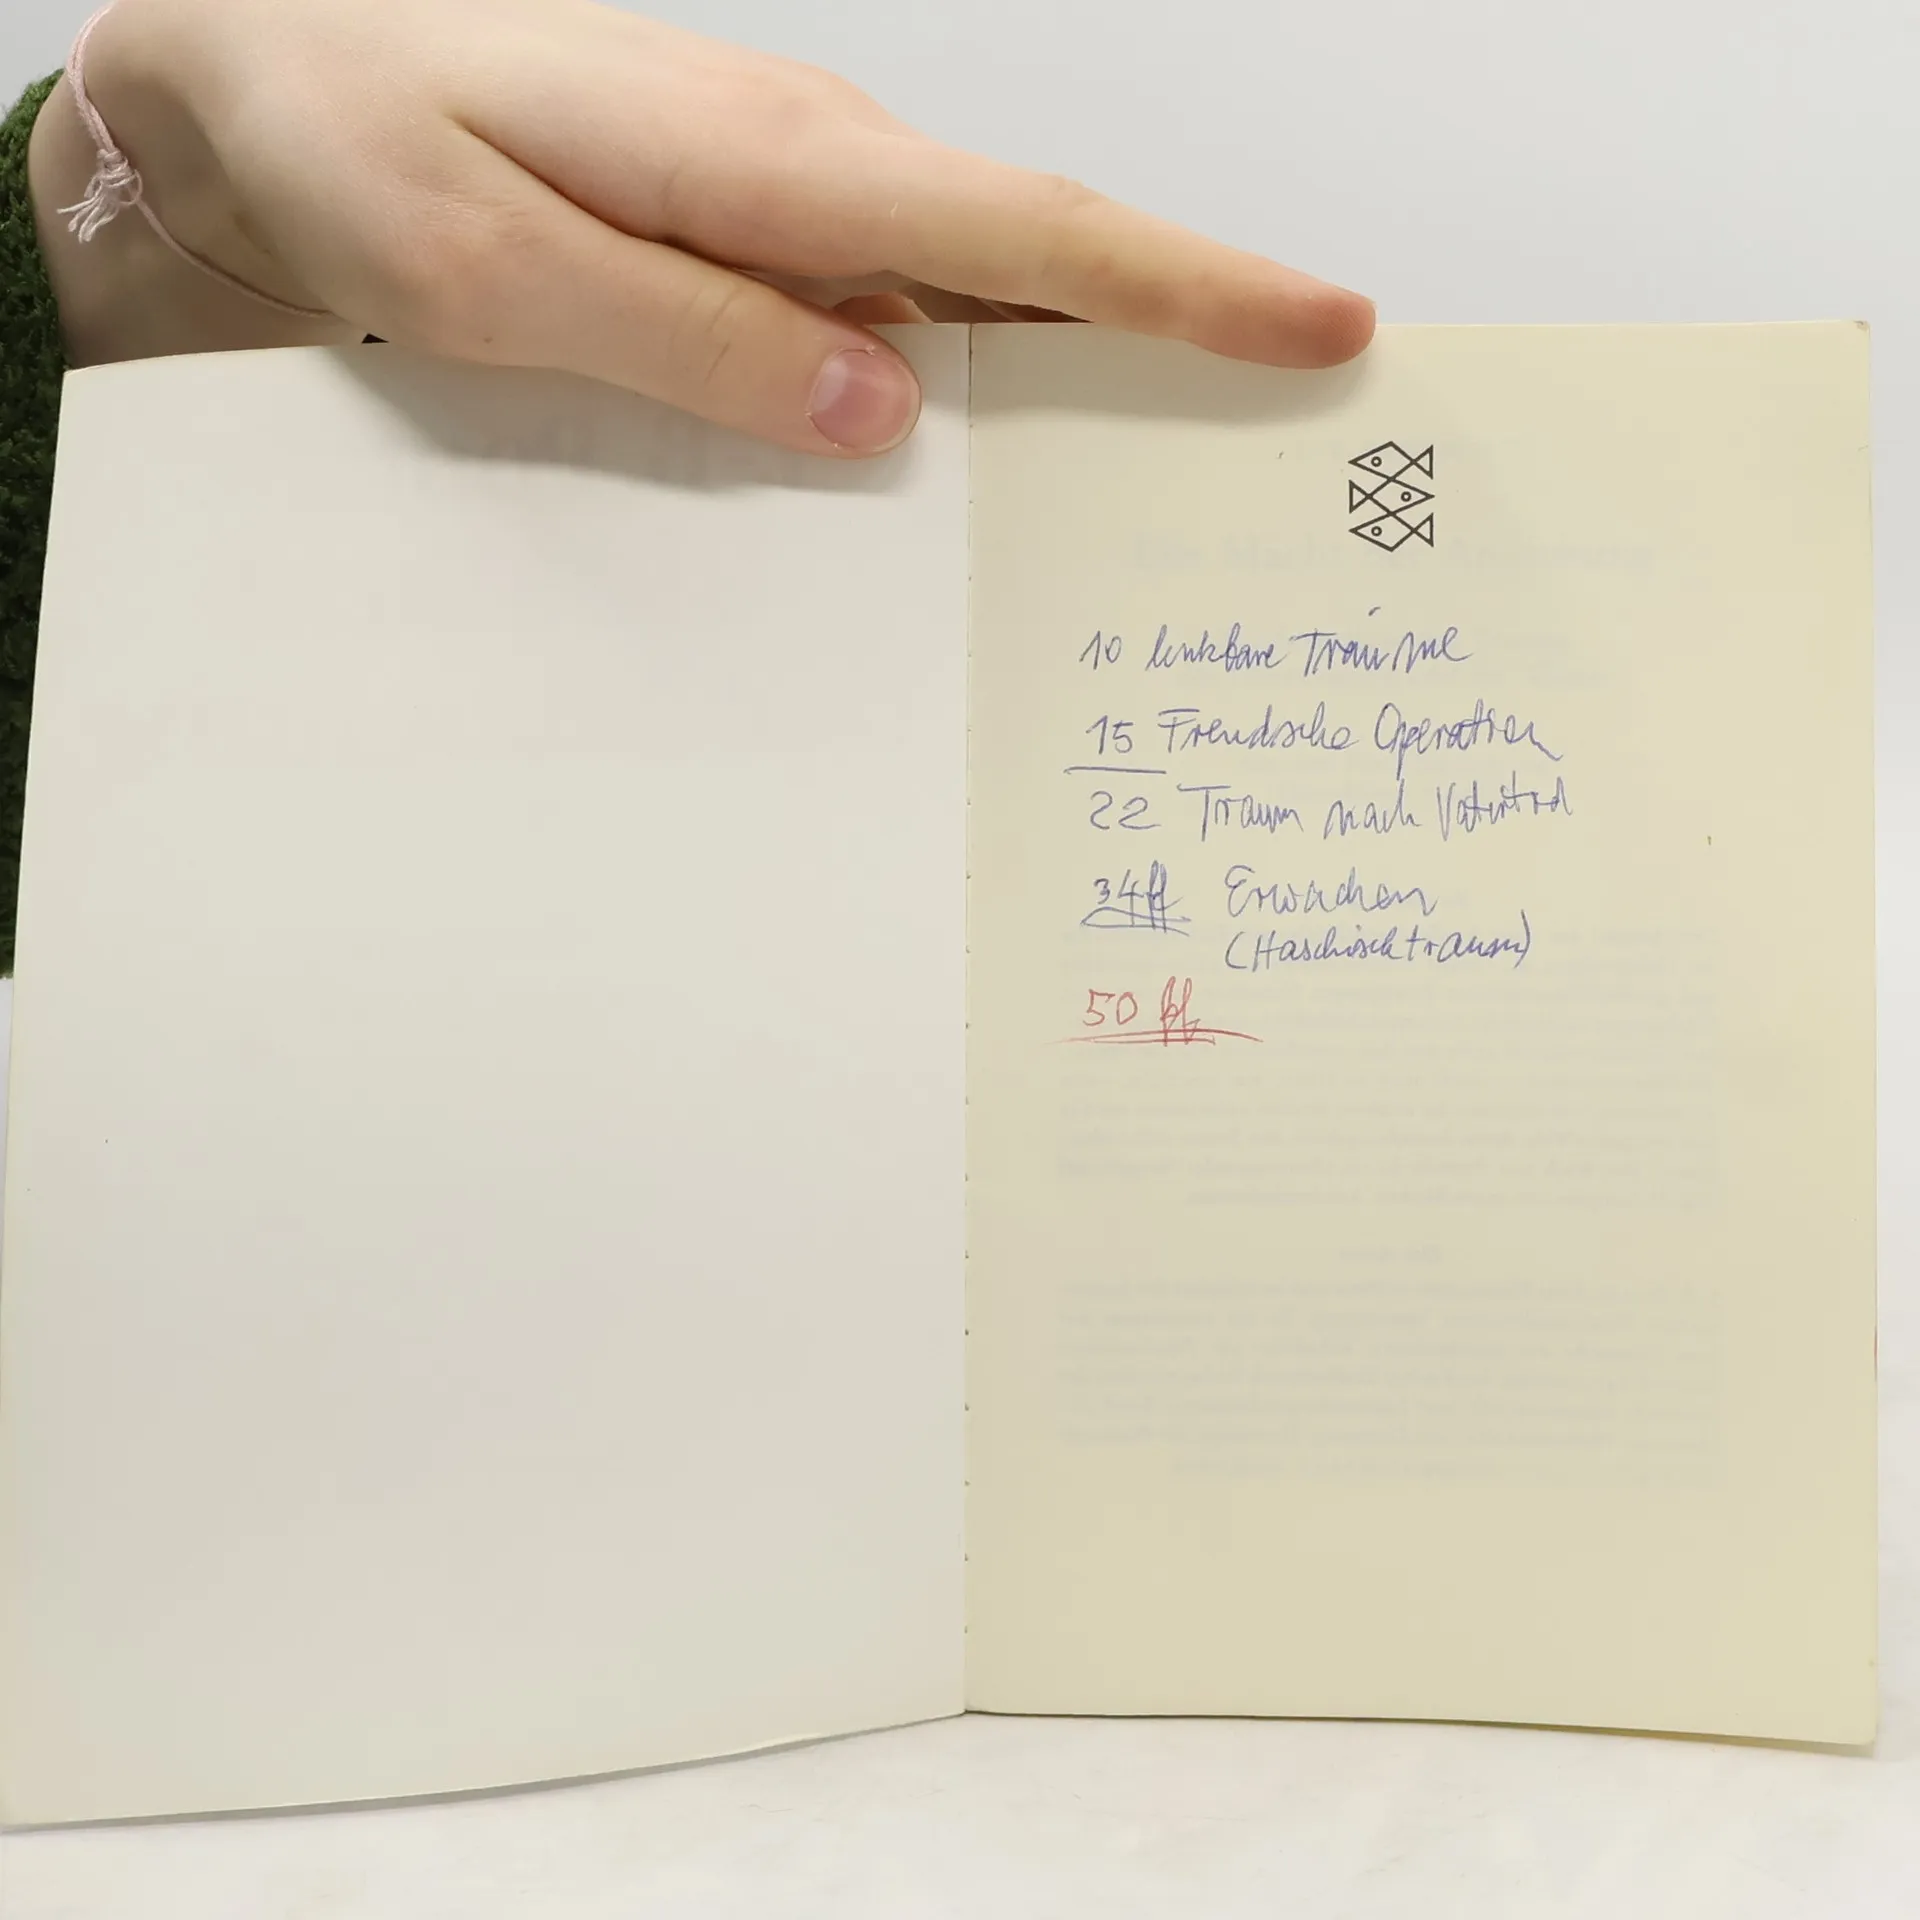 10 lenkbare Träume
15 Freudsche Operation
22 Traum nach Vatertod
34ff Erwachen
(Haschischtraum)
50 ff